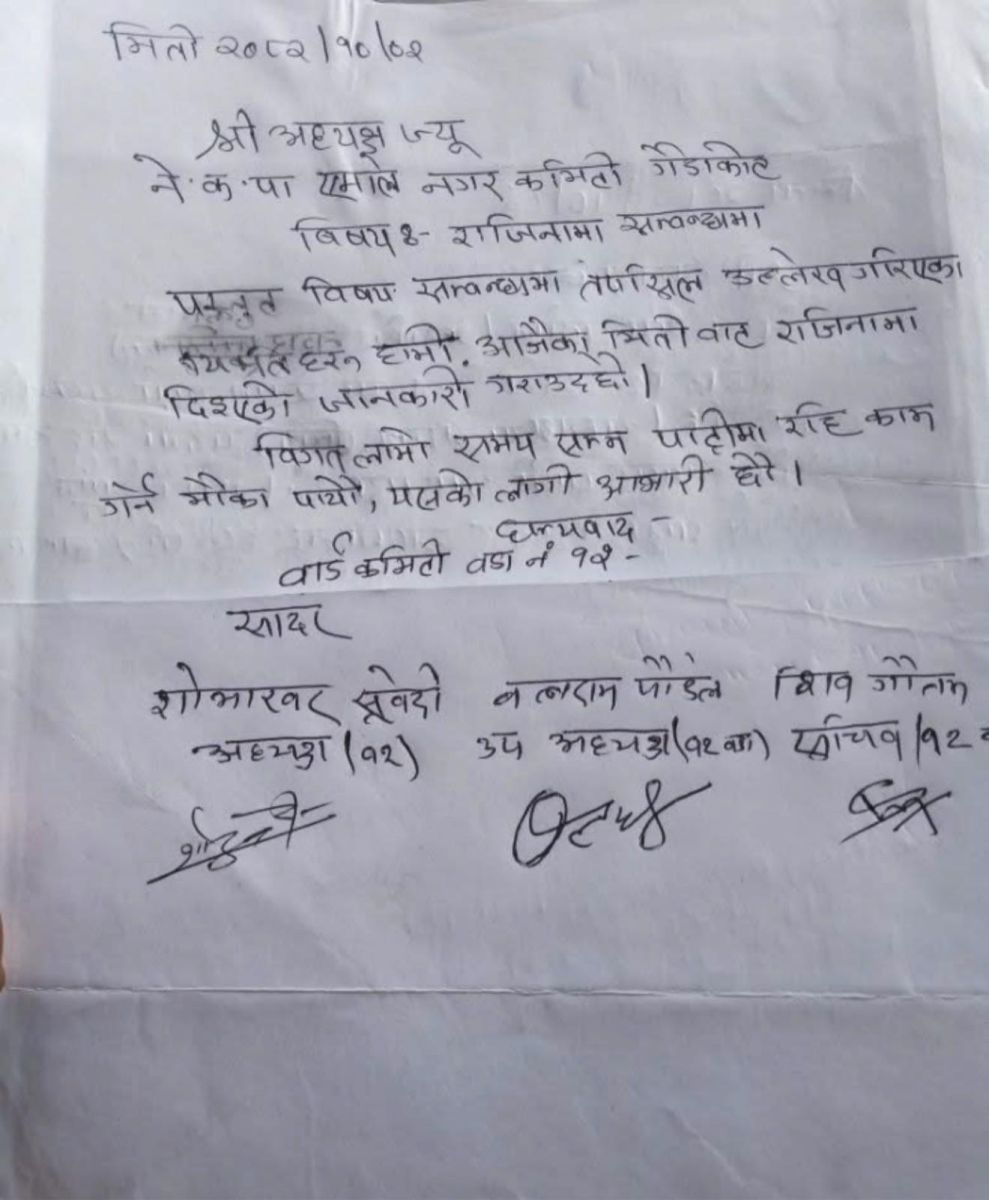 मिती २०८२/१०/०२
श्री अध्यक्ष ज्यू
ने.क.पा एमाले नगर कमिटी गैडाकोट
बिषय :- राजिनामा सम्वन्धमा
प्रस्तुत विषय सम्वन्धमा तपसिल उल्लेख गरिएका
हामी. आजैका मिती वाट राजिनामा
दिइएको जानकारी गराउदछौ।
विगत लामो समय सम्म पार्टीमा रहि काम
गर्ने मौका पायौ, यसको लागी आभारी छौ।
धन्यवाद -
वार्ड कमिटी वडा नं १२ -
सादर
शोभाखर वलराम पौडेल शिव गौतम
अध्यक्ष (१२) उप अध्यक्ष (१२ वडा) सचिव (१२